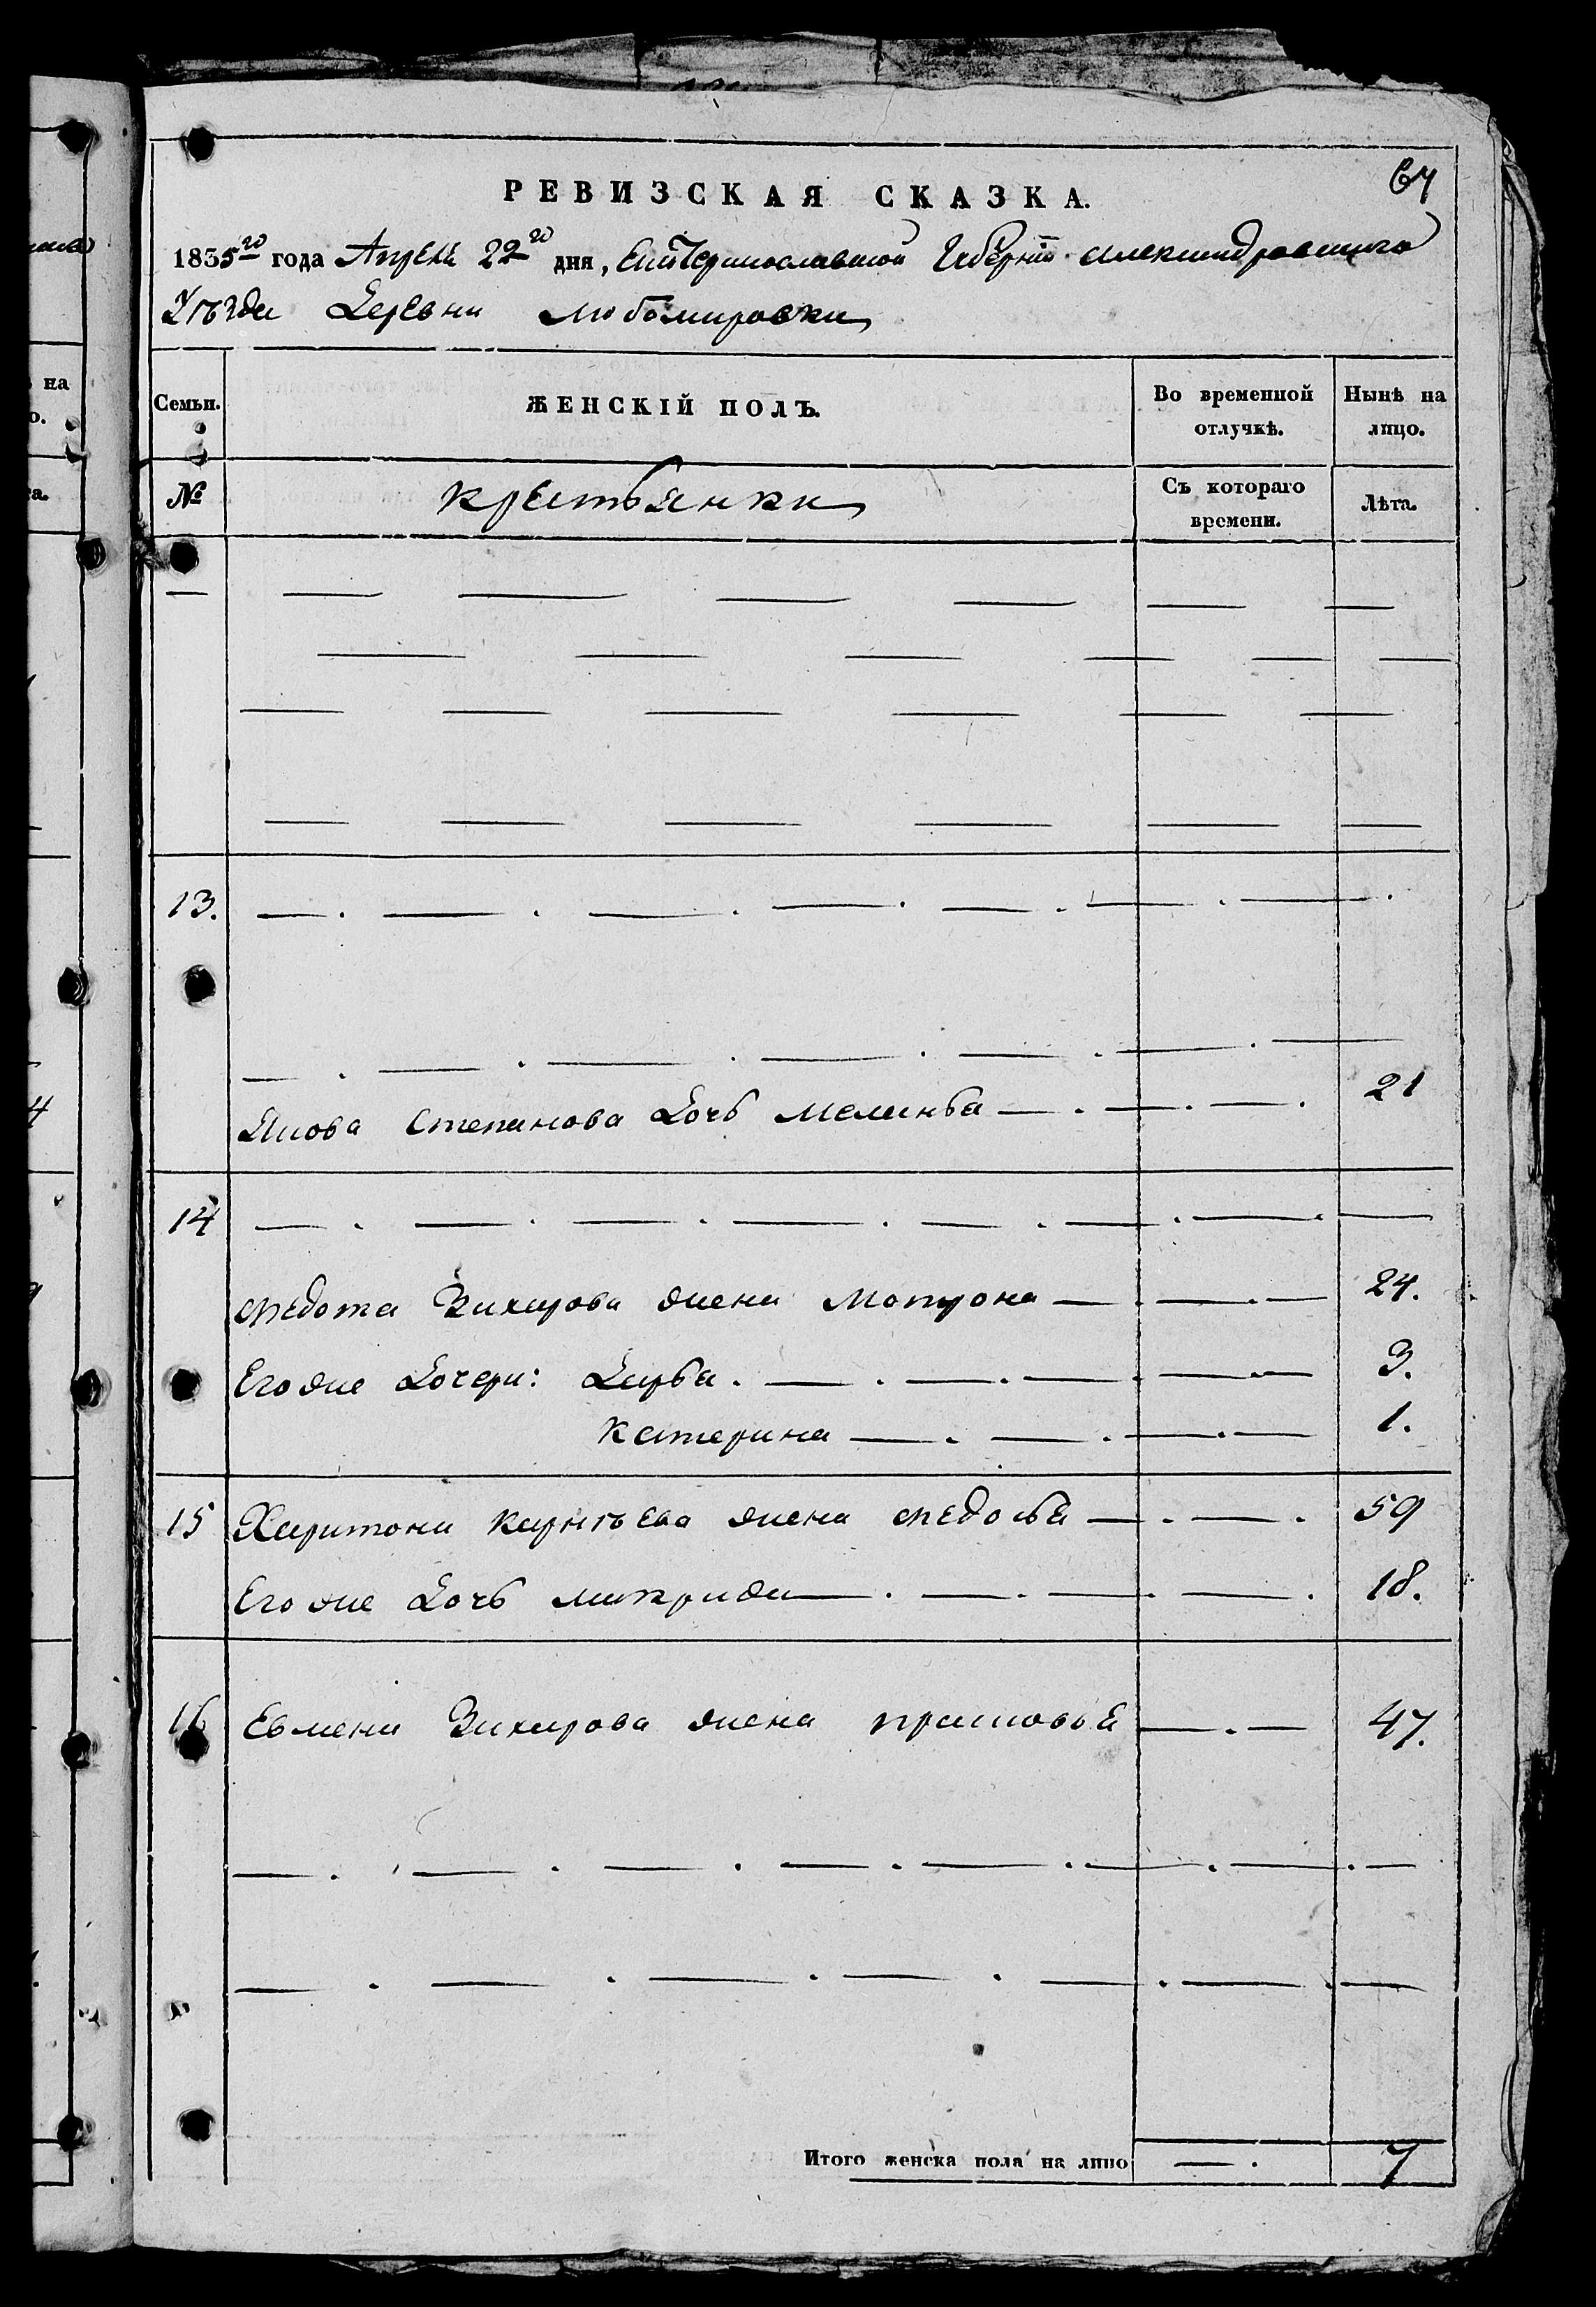 67
РЕВИЗСКАЯ СКАЗКА.
1835го года Апреля 22го дня, Екатеринославской Губернии Александровского
Уѣзда Деревни Любомировки
Семьи.
ЖЕНСКІЙ ПОЛЪ.
Во временной отлучкѣ.
Нынѣ на лицо.
№
Крестьянки
Съ котораго времени.
Лѣта.
13.
Якова Степанова дочь Меланья 21
14
Федота Захарова жена Мотрона 24.
Его же дочери: Дарья. 3.
Катерина 1.
15 Харитона Карнѣева жена Федосья 59
Его же дочь Мокрида 18.
16 Евмена Захарова жена Прасковья 47.
Итого женска пола на лицо 7